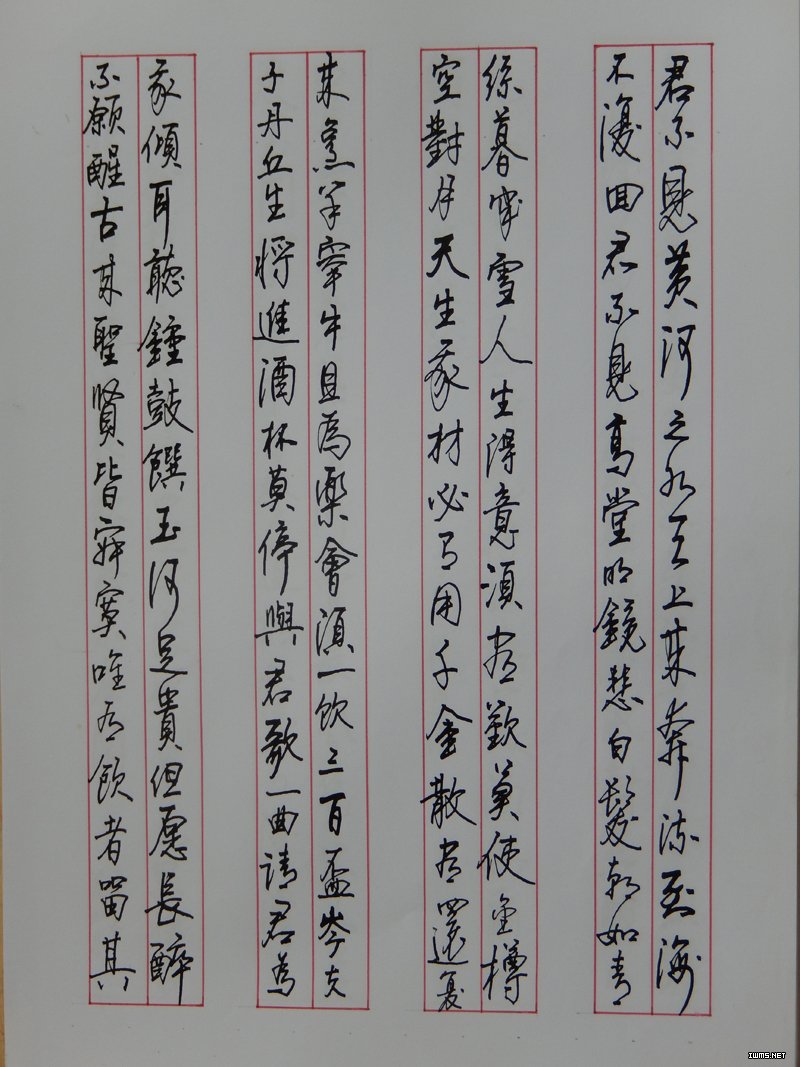 君不見黃河之水天上来奔流到海
不復回君不見高堂明鏡悲白髮朝如青
絲暮成雪人生得意須盡歡莫使金樽
空對月天生我材必有用千金散盡還复
来烹羊宰牛且為樂會須一飲三百盃岑夫
子丹丘生將進酒杯莫停與君歌一曲請君為
我傾耳聽鐘鼓饌玉何足貴但愿長醉
不願醒古来聖賢皆寂寞唯有飲者留其
IWMS.NET